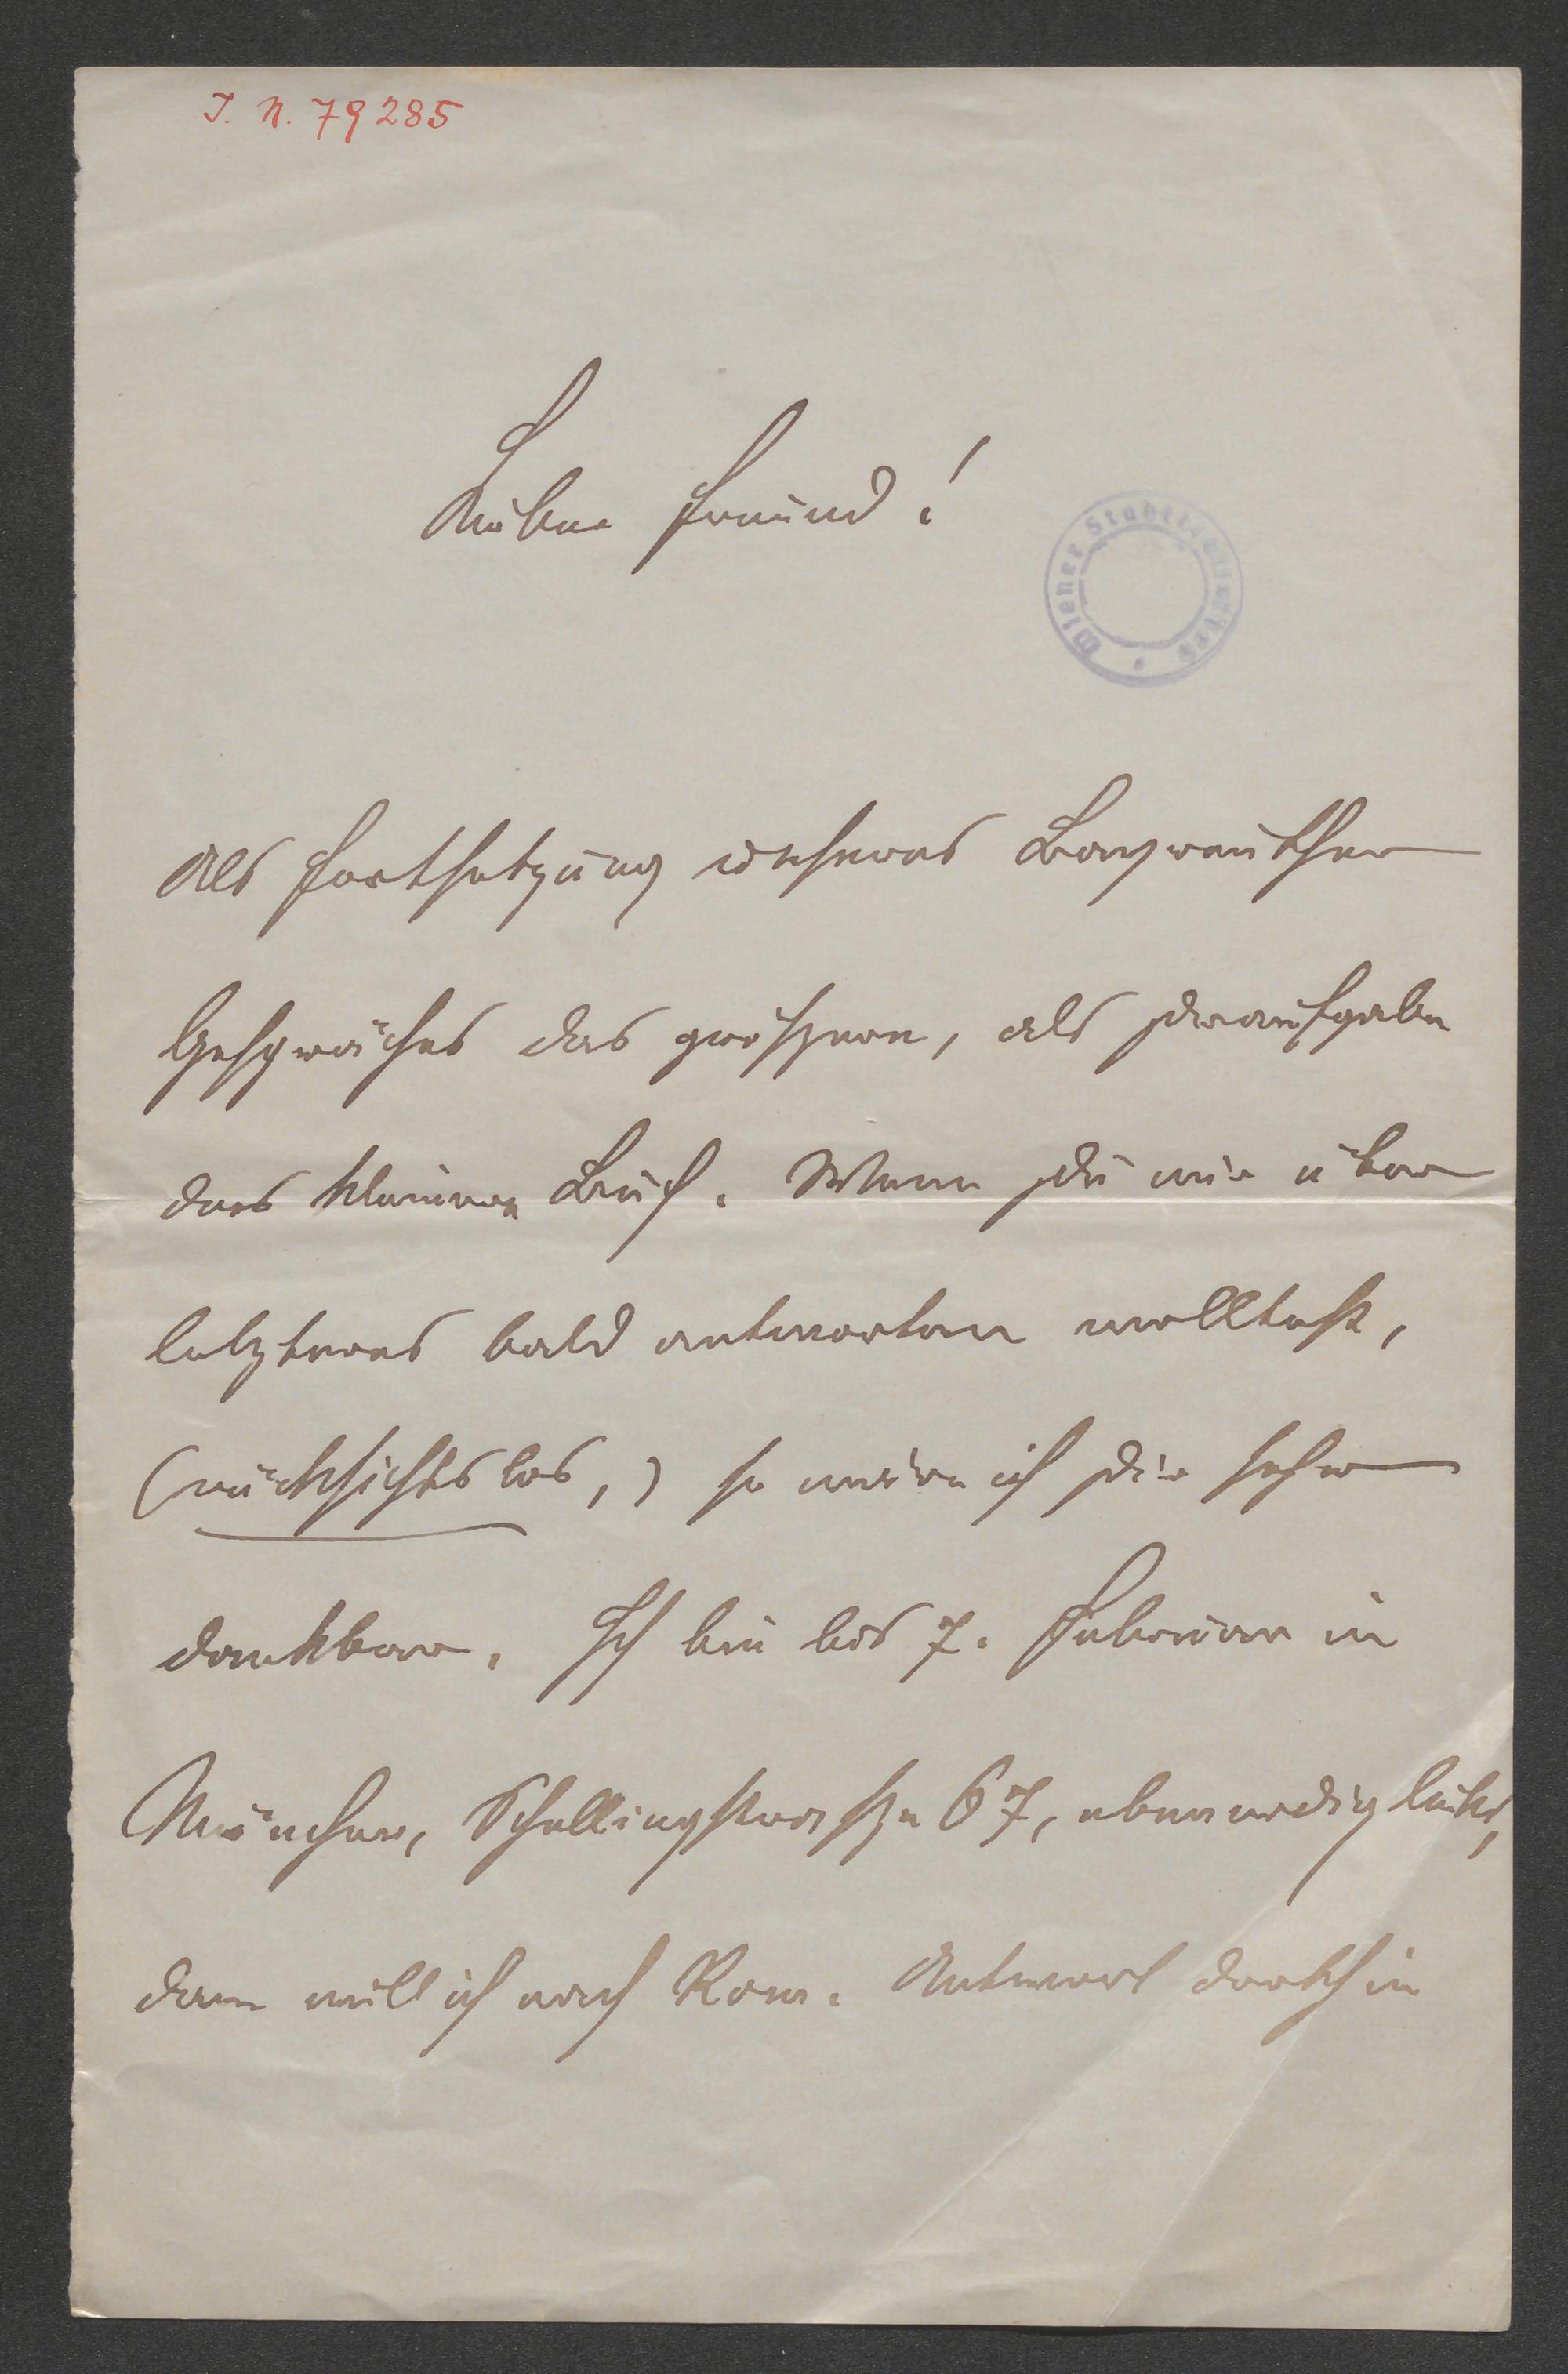 I. N. 79285
Lieber Freund!
Wiener Stadtbibliothek
Als Fortsetzung unseres Bayreuther
Gespräches das größere, als Draufgabe
das kleinere Buch. Wenn Du mir über
letzteres bald antworten wolltest,
(rücksichtslos,) so wäre ich Dir sehr
dankbar. Ich bin bis 7. Februar in
München, Schellingstraße 67, ebenerdig links,
dann will ich nach Rom. Antwort dorthin